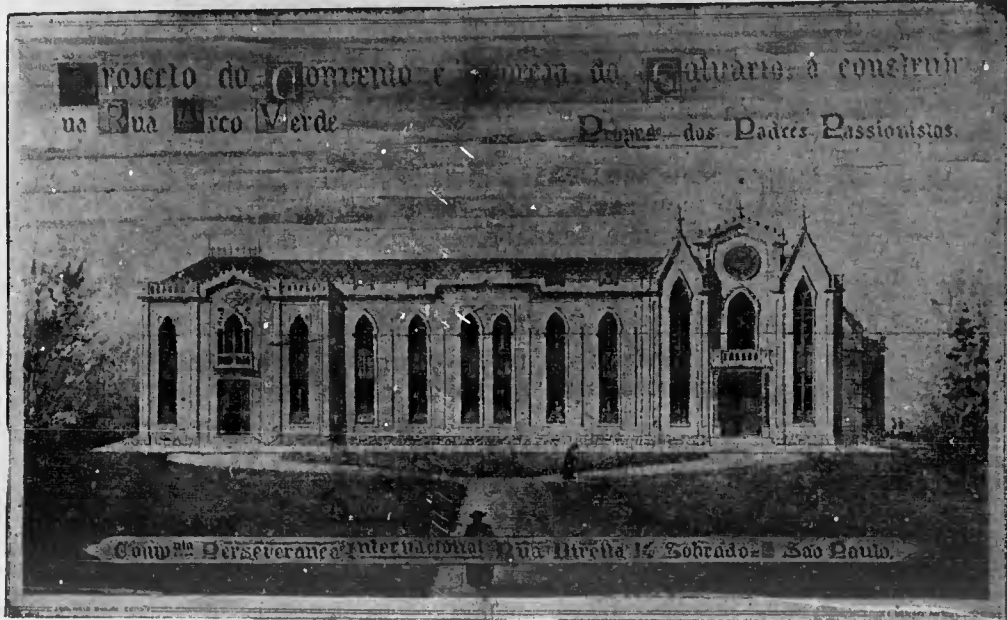 Projecto do Convento e Igreja do Calvario, á construir
na Rua Arco Verde dos Padres Passionistas.
Comp.nia Perseverança Internacional Rua Direita Sobrado São Paulo.